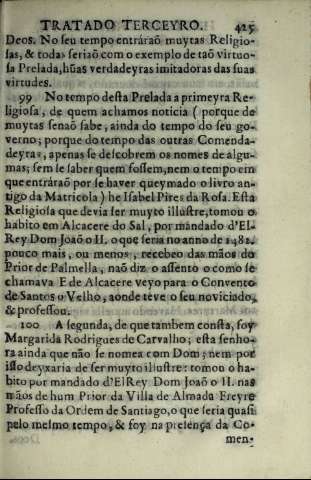 TRATADO TERCEYRO. 425
Deos. No seu tempo entráraõ muytas Religio-
sas, & todas seriaõ com o exemplo de taõ virtuo-
sa Prelada, hũas verdadeyras imitadoras das suas
virtudes.
99 No tempo desta Prelada a primeyra Re-
ligiosa, de quem achamos noticia (porque de
muytas senaõ sabe, ainda do tempo do seu go-
verno; porque do tempo das outras Comenda-
deyras, apenas se descobrem os nomes de algu-
mas; sem se saber quem fossem, nem o tempo em
que entráraõ por se haver queymado o livro an-
tigo da Matricola) he Isabel Pires da Rosa. Esta
Religiosa que devia ser muyto illustre, tomou o
habito em Alcacere do Sal, por mandado d'El-
Rey Dom Joaõ o II. o que seria no anno de 1482.
pouco mais, ou menos, recebeo das mãos do
Prior de Palmella, naõ diz o assento o como se
chamava E de Alcacere veyo para o Convento
de Santos o Velho, aonde teve o seu noviciado,
& professou.
100 A segunda, de que tambem consta, foy
Margarida Rodrigues de Carvalho; esta senho-
ra ainda que não se nomea com Dom; nem por
isso deyxaria de ser muyto illustre: tomou o ha-
bito por mandado d'ElRey Dom Joaõ o II. nas
mãos de hum Prior da Villa de Almada Freyre
Professo da Ordem de Santiago, o que seria quasi
pelo mesmo tempo, & foy na presença da Co-
men-